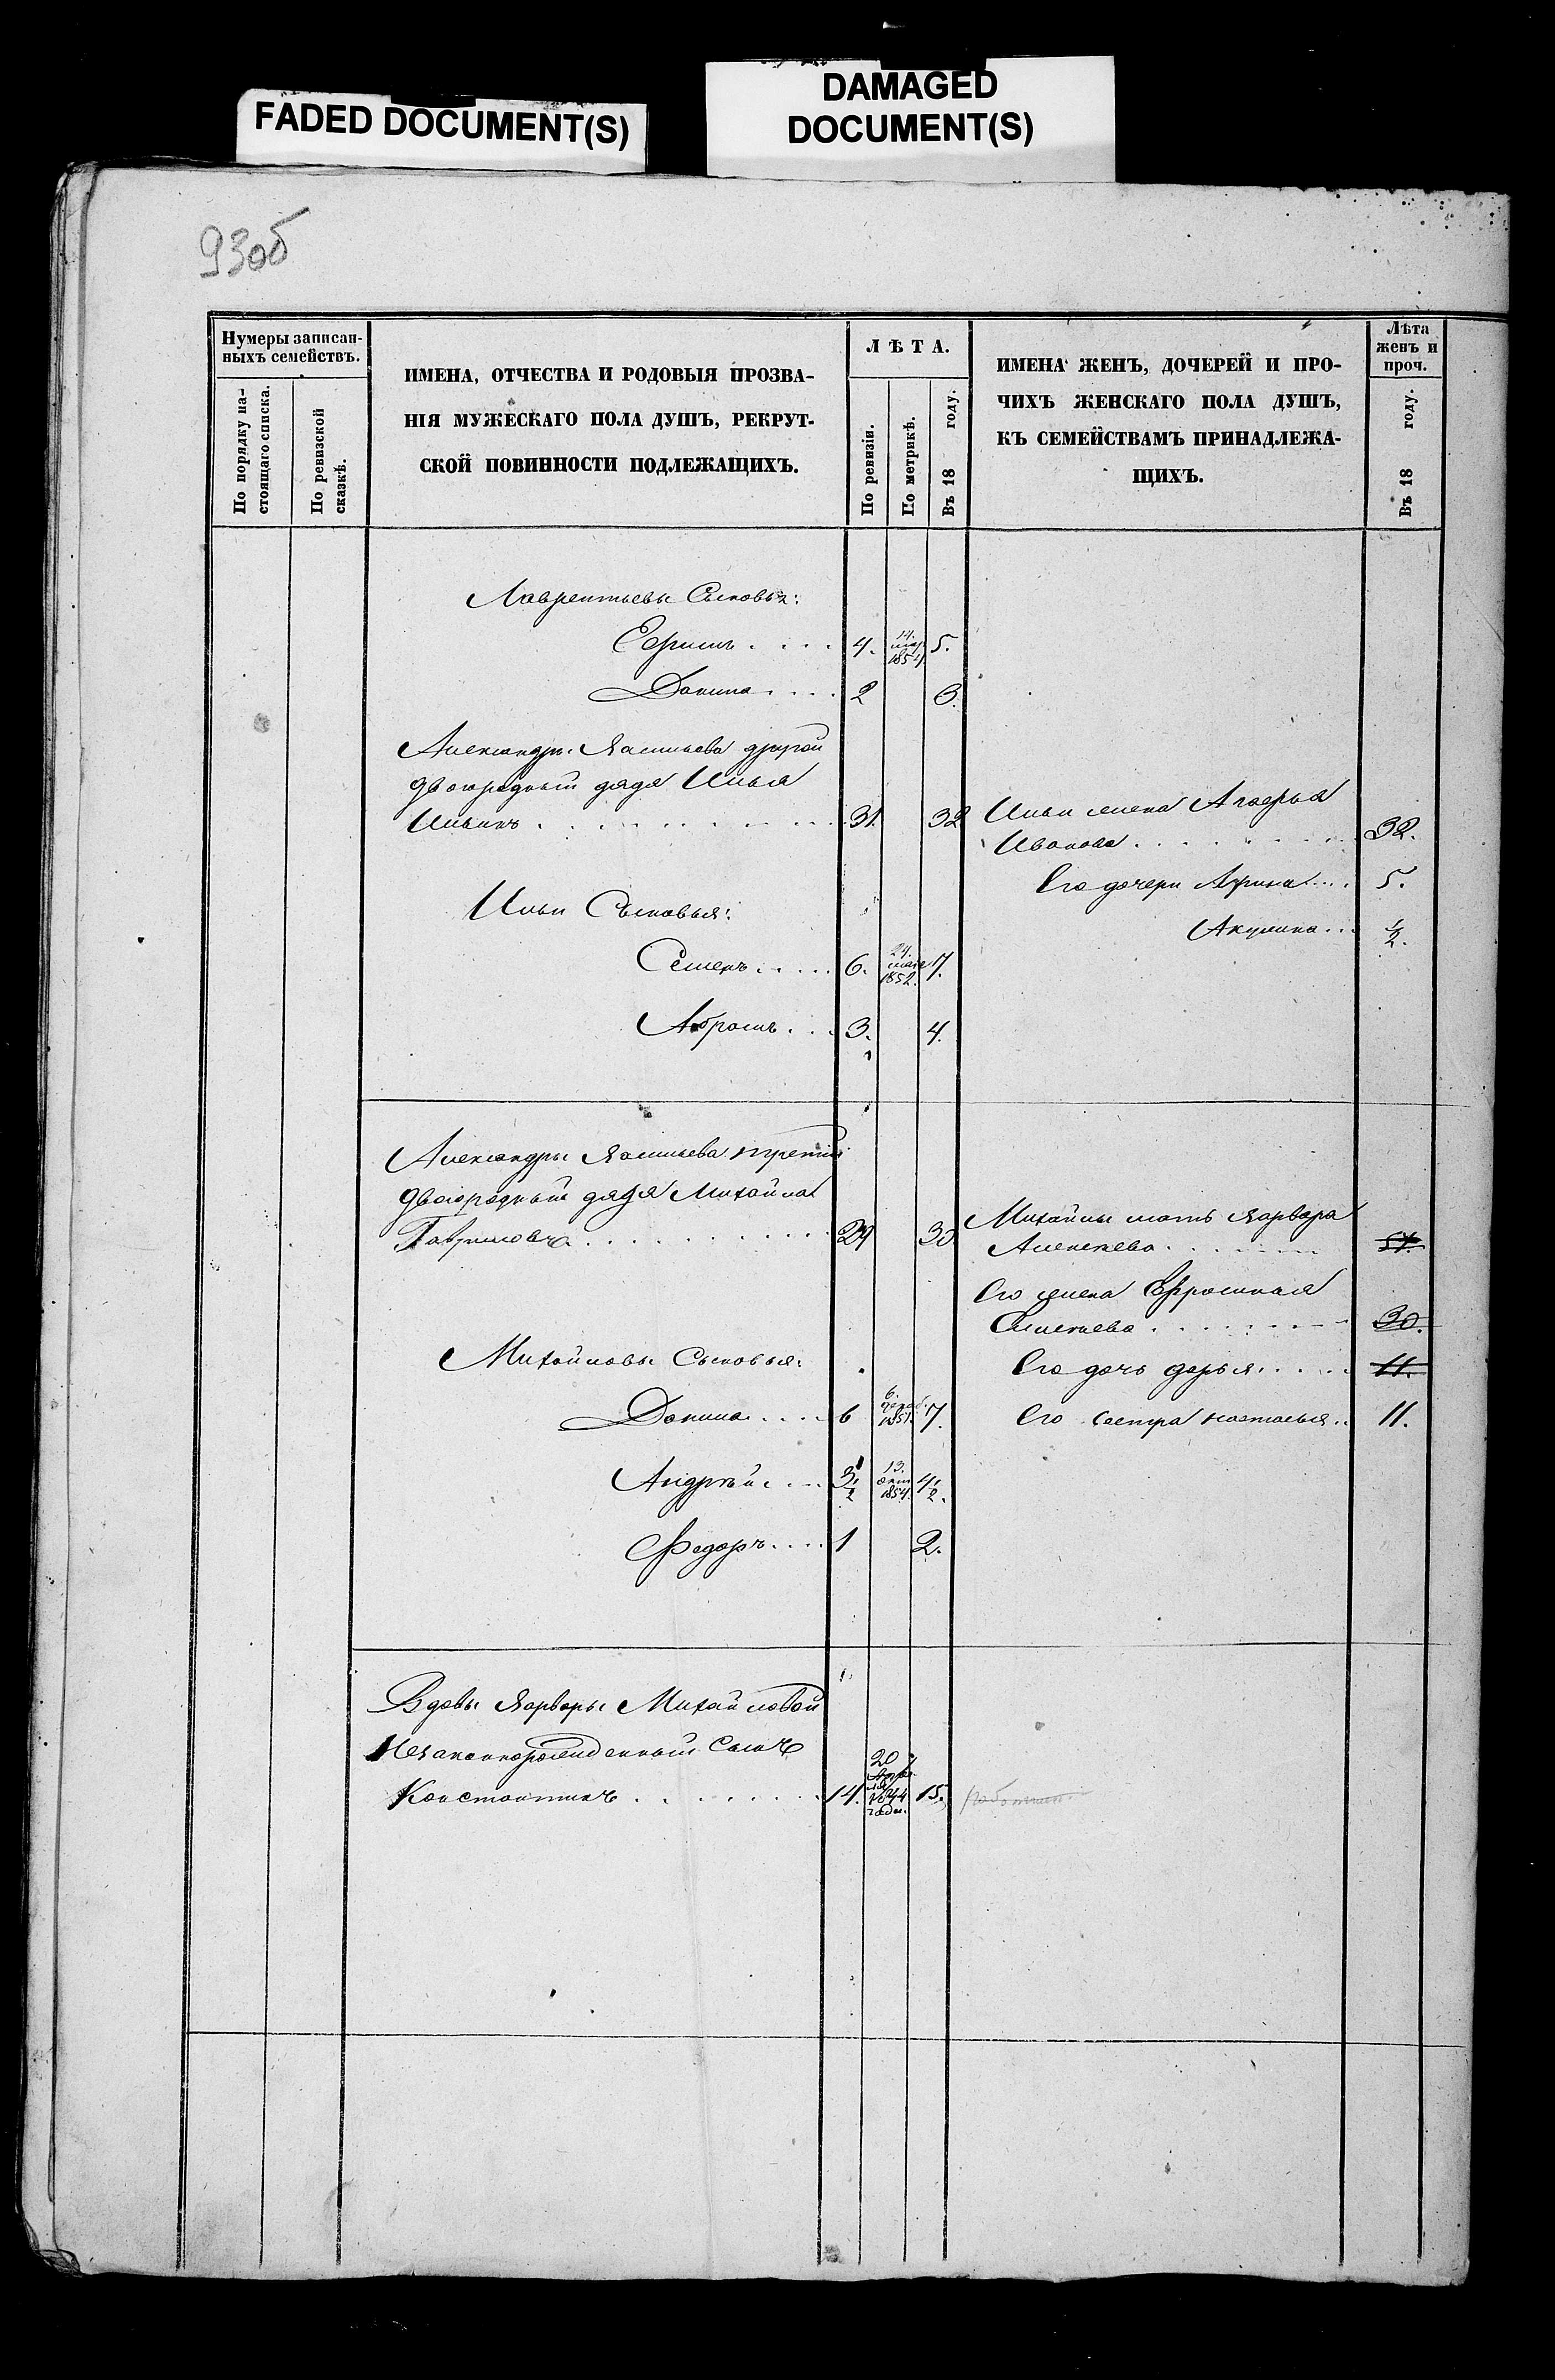 FADED DOCUMENT(S)
DAMAGED
DOCUMENT(S)
93об
Нумеры записан-
ныхъ семействъ.
По порядку на-
стоящаго списка.
По ревизской
сказкѣ.
ИМЕНА, ОТЧЕСТВА И РОДОВЫЯ ПРОЗВА-
НІЯ МУЖЕСКАГО ПОЛА ДУШЪ, РЕКРУТ-
СКОЙ ПОВИННОСТИ ПОДЛЕЖАЩИХЪ.
ЛѢТА.
По ревизіи.
По метрикѣ.
Въ 18 году.
ИМЕНА ЖЕНЪ, ДОЧЕРЕЙ И ПРО-
ЧИХЪ ЖЕНСКАГО ПОЛА ДУШЪ,
КЪ СЕМЕЙСТВАМЪ ПРИНАДЛЕЖА-
ЩИХЪ.
Лѣта
женъ и
проч.
Въ 18 году.
Лаврентьевы Сыновья:
Ефимъ . . . . 4. 14. мар 1854 5.
Данила . . . . 2 3.
Александры Васильева другой
двоюродный дядя Илья
Ильинъ . . . . . . . . 31. 32
Ильи жена Аграфья
Иванова . . . . . . . 32.
Его дочери Арина . . . . 5.
Акулина . . . 1/2.
Ильи Сыновья:
Семенъ . . . . . 6. 24. 1852. 7.
Абрамъ . . . 3. 4.
Александры Васильева третій
двоюродный дядя Михайла
Гавриловъ . . . . . . . . 29 30
Михайлы мать Варвара
Алексѣева . . . . . . 57.
Его жена Ефросинья
Алексѣева . . . . . . . 30.
Его дочь дарья . . . . . 11.
Его сестра настасья . . 11.
Михайловы Сыновья:
Данила . . . . 6 6. 1851. 7.
Андрѣй . . . . 3 1/2 13. окт 1854. 4 1/2.
Федоръ . . . . 1 2.
Вдовы Варвары Михайловой
Незаконнорожденный сынъ
Константинъ . . . . . . . 14. 20 Апрѣля 1844 года. 15.